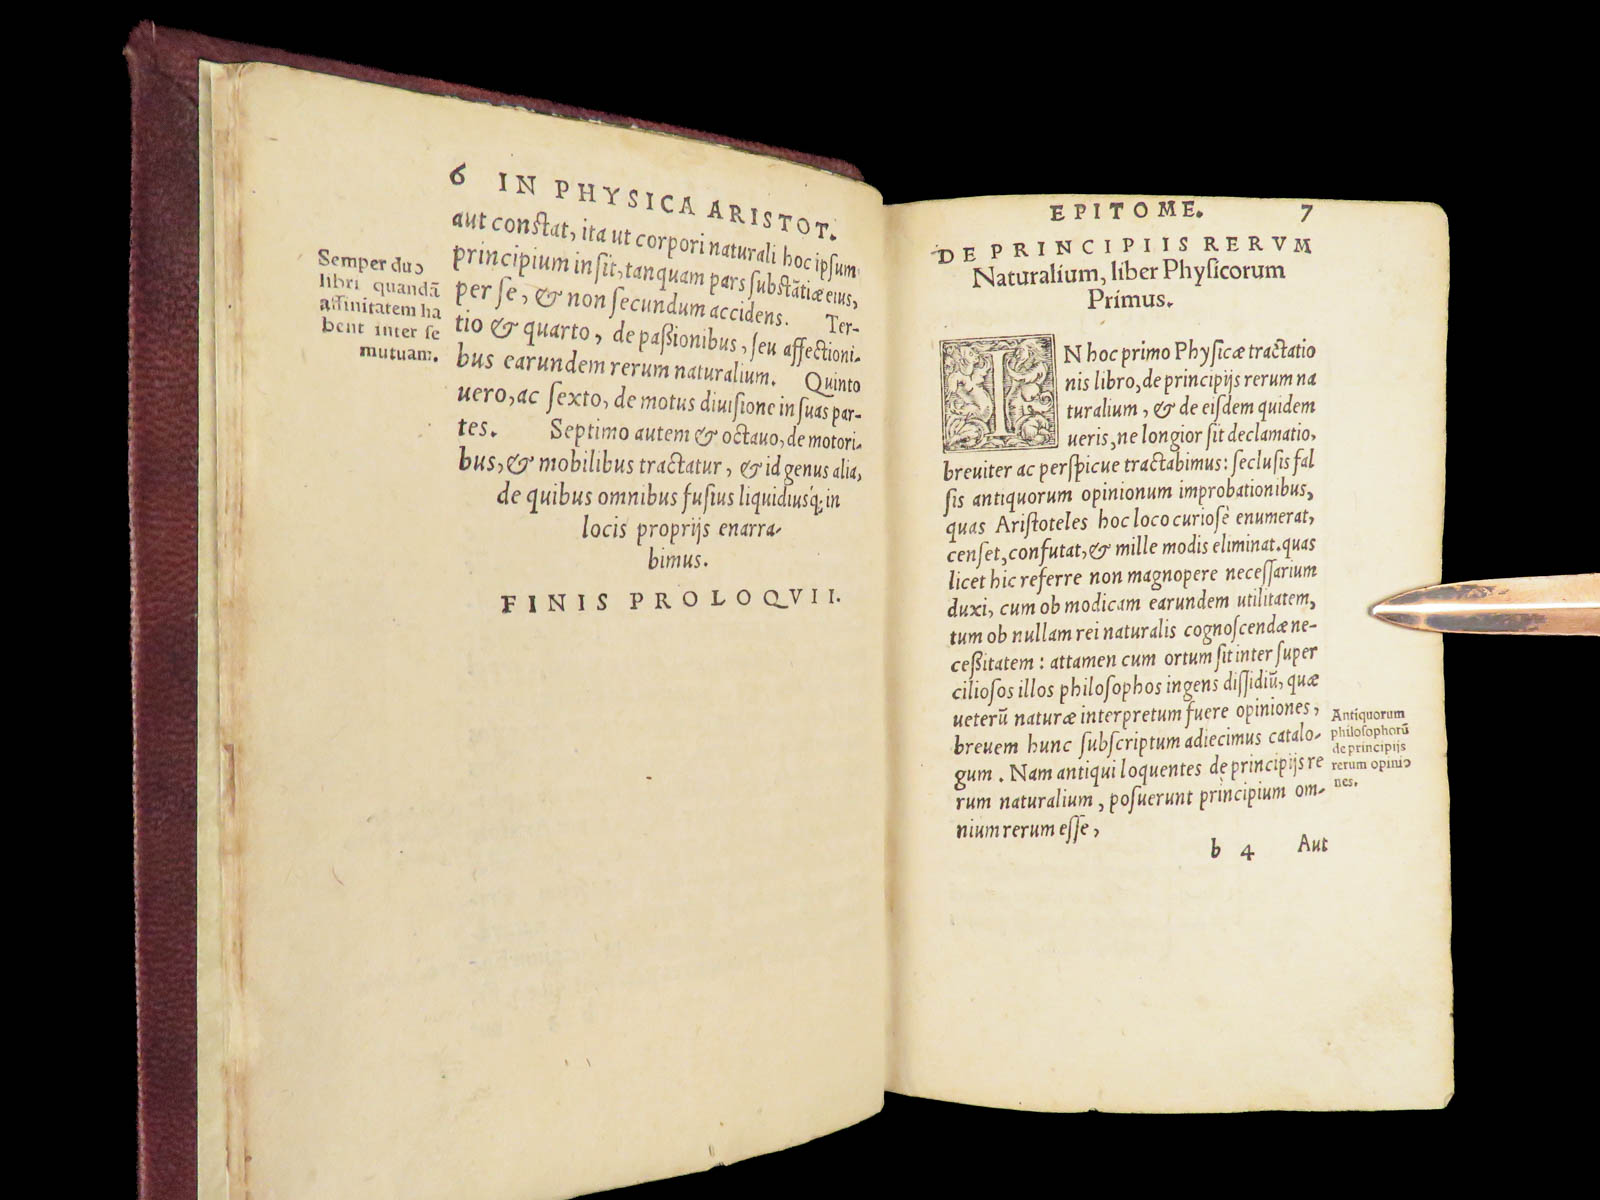 6 IN PHYSICA ARISTOT.
aut constat, ita ut corpori naturali hoc ipsum
principium insit, tanquam pars substãtiæ eius,
per se, & non secundum accidens. Ter-
tio & quarto, de paßionibus, seu affectioni-
bus earundem rerum naturalium. Quinto
uero, ac sexto, de motus diuisione in suas par-
tes. Septimo autem & octauo, de motori-
bus, & mobilibus tractatur, & id genus alia,
de quibus omnibus fusius liquidiusq́; in
locis proprijs enarra-
bimus.
FINIS PROLOQVII.
Semper duo
libri quandã
affinitatem ha
bent inter se
mutuam.
EPITOME. 7
DE PRINCIPIIS RERVM
Naturalium, liber Physicorum
Primus.
IN hoc primo Physicæ tractatio
nis libro, de principijs rerum na
turalium, & de eisdem quidem
ueris, ne longior sit declamatio,
breuiter ac perspicue tractabimus: seclusis fal
sis antiquorum opinionum improbationibus,
quas Aristoteles hoc loco curiosè enumerat,
censet, confutat, & mille modis eliminat. quas
licet hic referre non magnopere necessarium
duxi, cum ob modicam earundem utilitatem,
tum ob nullam rei naturalis cognoscendæ ne-
ceßitatem: attamen cum ortum sit inter super
ciliosos illos philosophos ingens dissidiũ, quæ
ueterũ naturæ interpretum fuere opiniones,
breuem hunc subscriptum adiecimus catalo-
gum. Nam antiqui loquentes de principijs re
rum naturalium, posuerunt principium om-
nium rerum esse,
b 4 Aut
Antiquorum
philosophorũ
de principijs
rerum opinio
nes.